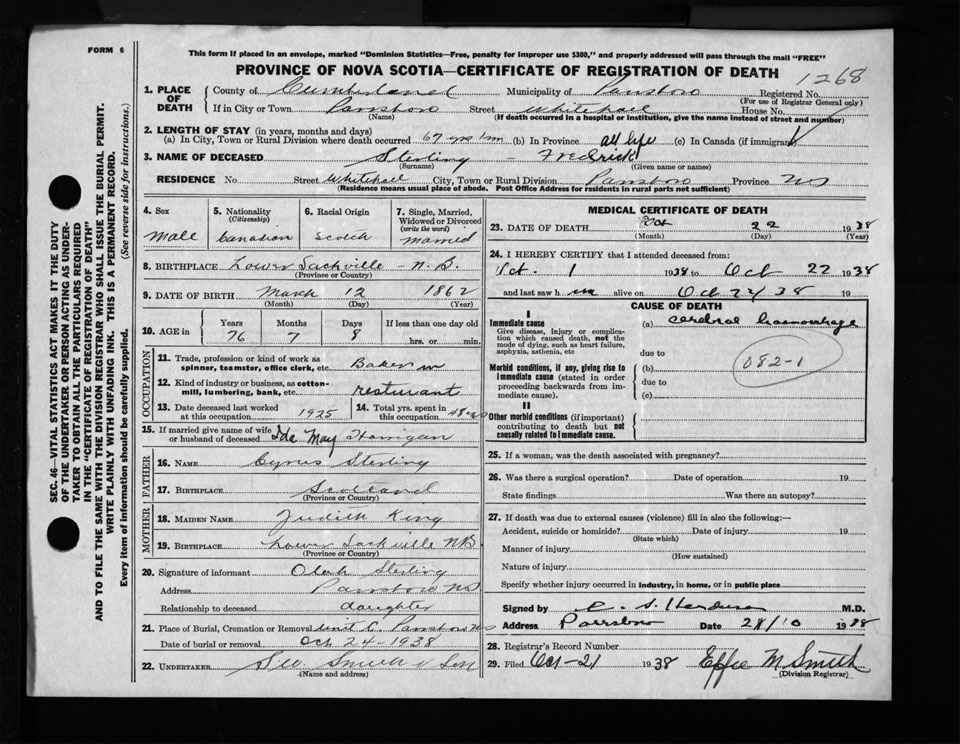 FORM 6
This form if placed in an envelope, marked "Dominion Statistics—Free, penalty for improper use $300," and properly addressed will pass through the mail "FREE"
PROVINCE OF NOVA SCOTIA—CERTIFICATE OF REGISTRATION OF DEATH
1268
1. PLACE OF DEATH
County of Cumberland Municipality of Parrsboro Registered No.
(For use of Registrar General only)
If in City or Town Parrsboro Street Whitehall House No.
(Name) (If death occurred in a hospital or institution, give the name instead of street and number)
2. LENGTH OF STAY (in years, months and days)
(a) In City, Town or Rural Division where death occurred 67 yrs 1m (b) In Province all life (c) In Canada (if immigrant)
3. NAME OF DECEASED Sterling - Fredrick
(Surname) (Given name or names)
RESIDENCE No. Street Whitehall City, Town or Rural Division Parrsboro Province NS
(Residence means usual place of abode. Post Office Address for residents in rural parts not sufficient)
SEC. 46—VITAL STATISTICS ACT MAKES IT THE DUTY
OF THE UNDERTAKER OR PERSON ACTING AS UNDER-
TAKER TO OBTAIN ALL THE PARTICULARS REQUIRED
IN THE "CERTIFICATE OF REGISTRATION OF DEATH"
AND TO FILE THE SAME WITH THE DIVISION REGISTRAR WHO SHALL ISSUE THE BURIAL PERMIT.
WRITE PLAINLY WITH UNFADING INK. THIS IS A PERMANENT RECORD.
Every item of information should be carefully supplied. (See reverse side for instructions.)
4. Sex
Male
5. Nationality
(Citizenship)
Canadian
6. Racial Origin
Scotch
7. Single, Married,
Widowed or Divorced
(write the word)
married
8. BIRTHPLACE Lower Sackville - N.B.
(Province or Country)
9. DATE OF BIRTH March 12 1862
(Month) (Day) (Year)
10. AGE in
Years Months Days If less than one day old
76 7 8 hrs. or min.
OCCUPATION
11. Trade, profession or kind of work as
spinner, teamster, office clerk, etc. Baker in
12. Kind of industry or business, as cotton-
mill, lumbering, bank, etc. resturant
13. Date deceased last worked
at this occupation 1925
14. Total yrs. spent in
this occupation 48
15. If married give name of wife
or husband of deceased Ida May Harrigan
FATHER
16. NAME Cyrus Sterling
17. BIRTHPLACE Scotland
(Province or Country)
MOTHER
18. MAIDEN NAME Judith King
19. BIRTHPLACE Lower Sackville NB
(Province or Country)
20. Signature of informant Sterling
Address Parrsboro NS
Relationship to deceased daughter
21. Place of Burial, Cremation or Removal Parrsboro NS
Date of burial or removal Oct 24 - 1938
22. UNDERTAKER Smith & Son
(Name and address)
MEDICAL CERTIFICATE OF DEATH
23. DATE OF DEATH Oct 22 1938
(Month) (Day) (Year)
24. I HEREBY CERTIFY that I attended deceased from:
Oct. 1 1938 to Oct 22 1938
and last saw h im alive on Oct 22 38 19
CAUSE OF DEATH
I
Immediate cause
Give disease, injury or complica-
tion which caused death, not the
mode of dying, such as heart failure,
asphyxia, asthenia, etc
(a) cerebral haemorrhage
due to
Morbid conditions, if any, giving rise to
immediate cause (stated in order
proceeding backwards from im-
mediate cause).
(b)
082-1
due to
(c)
II
Other morbid conditions (if important)
contributing to death but not
causally related to immediate cause.
25. If a woman, was the death associated with pregnancy?
26. Was there a surgical operation? Date of operation 19
State findings Was there an autopsy?
27. If death was due to external causes (violence) fill in also the following:—
Accident, suicide or homicide? Date of injury 19
(State which)
Manner of injury
(How sustained)
Nature of injury
Specify whether injury occurred in industry, in home, or in public place
Signed by M.D.
Address Parrsboro Date 1938
28. Registrar's Record Number
29. Filed Oct - 21 1938 Effie M Smith
(Division Registrar)